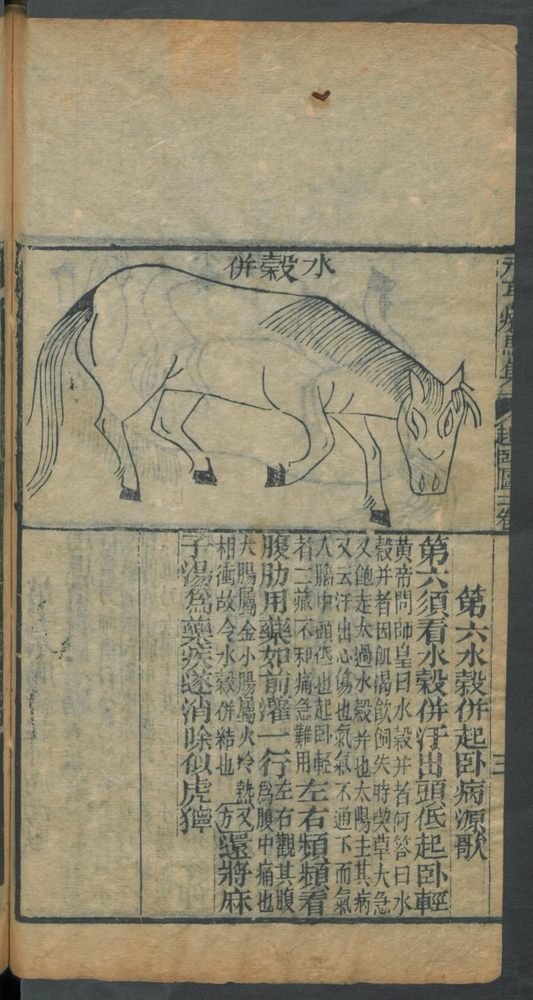 水穀併
第六水穀併起卧病源歌
第六須看水穀併汗出頭低起卧輕
黃帝問師皇曰水穀并者何答曰水
穀并者因飢渴飲飼失時喫草大急
又飽走太過水穀并也太陽主其病
又云汗出心傷也氣氣不通下而氣
入膽中頭低也起卧輕
者二藏不和痛急難用左右頻頻看
腹肋用藥如前灌一行左右觀其腹
爲腹中痛也
大腸屬金小腸屬火冷熱又
相衝故令水穀併結也方還將麻
子湯爲藥疾遂消除似虎獰
三